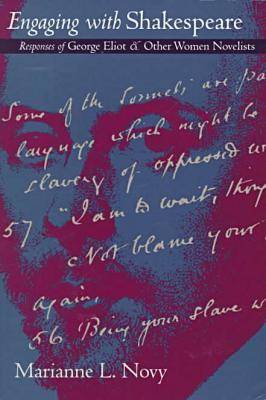 Engaging with Shakespeare
Responses of George Eliot & Other Women Novelists
Some of the Sonnets are pa
language which might be
slavery of oppressed w
57 "I am to wait, thou
Not blame your
again.
56 Being your slave w
Marianne L. Novy